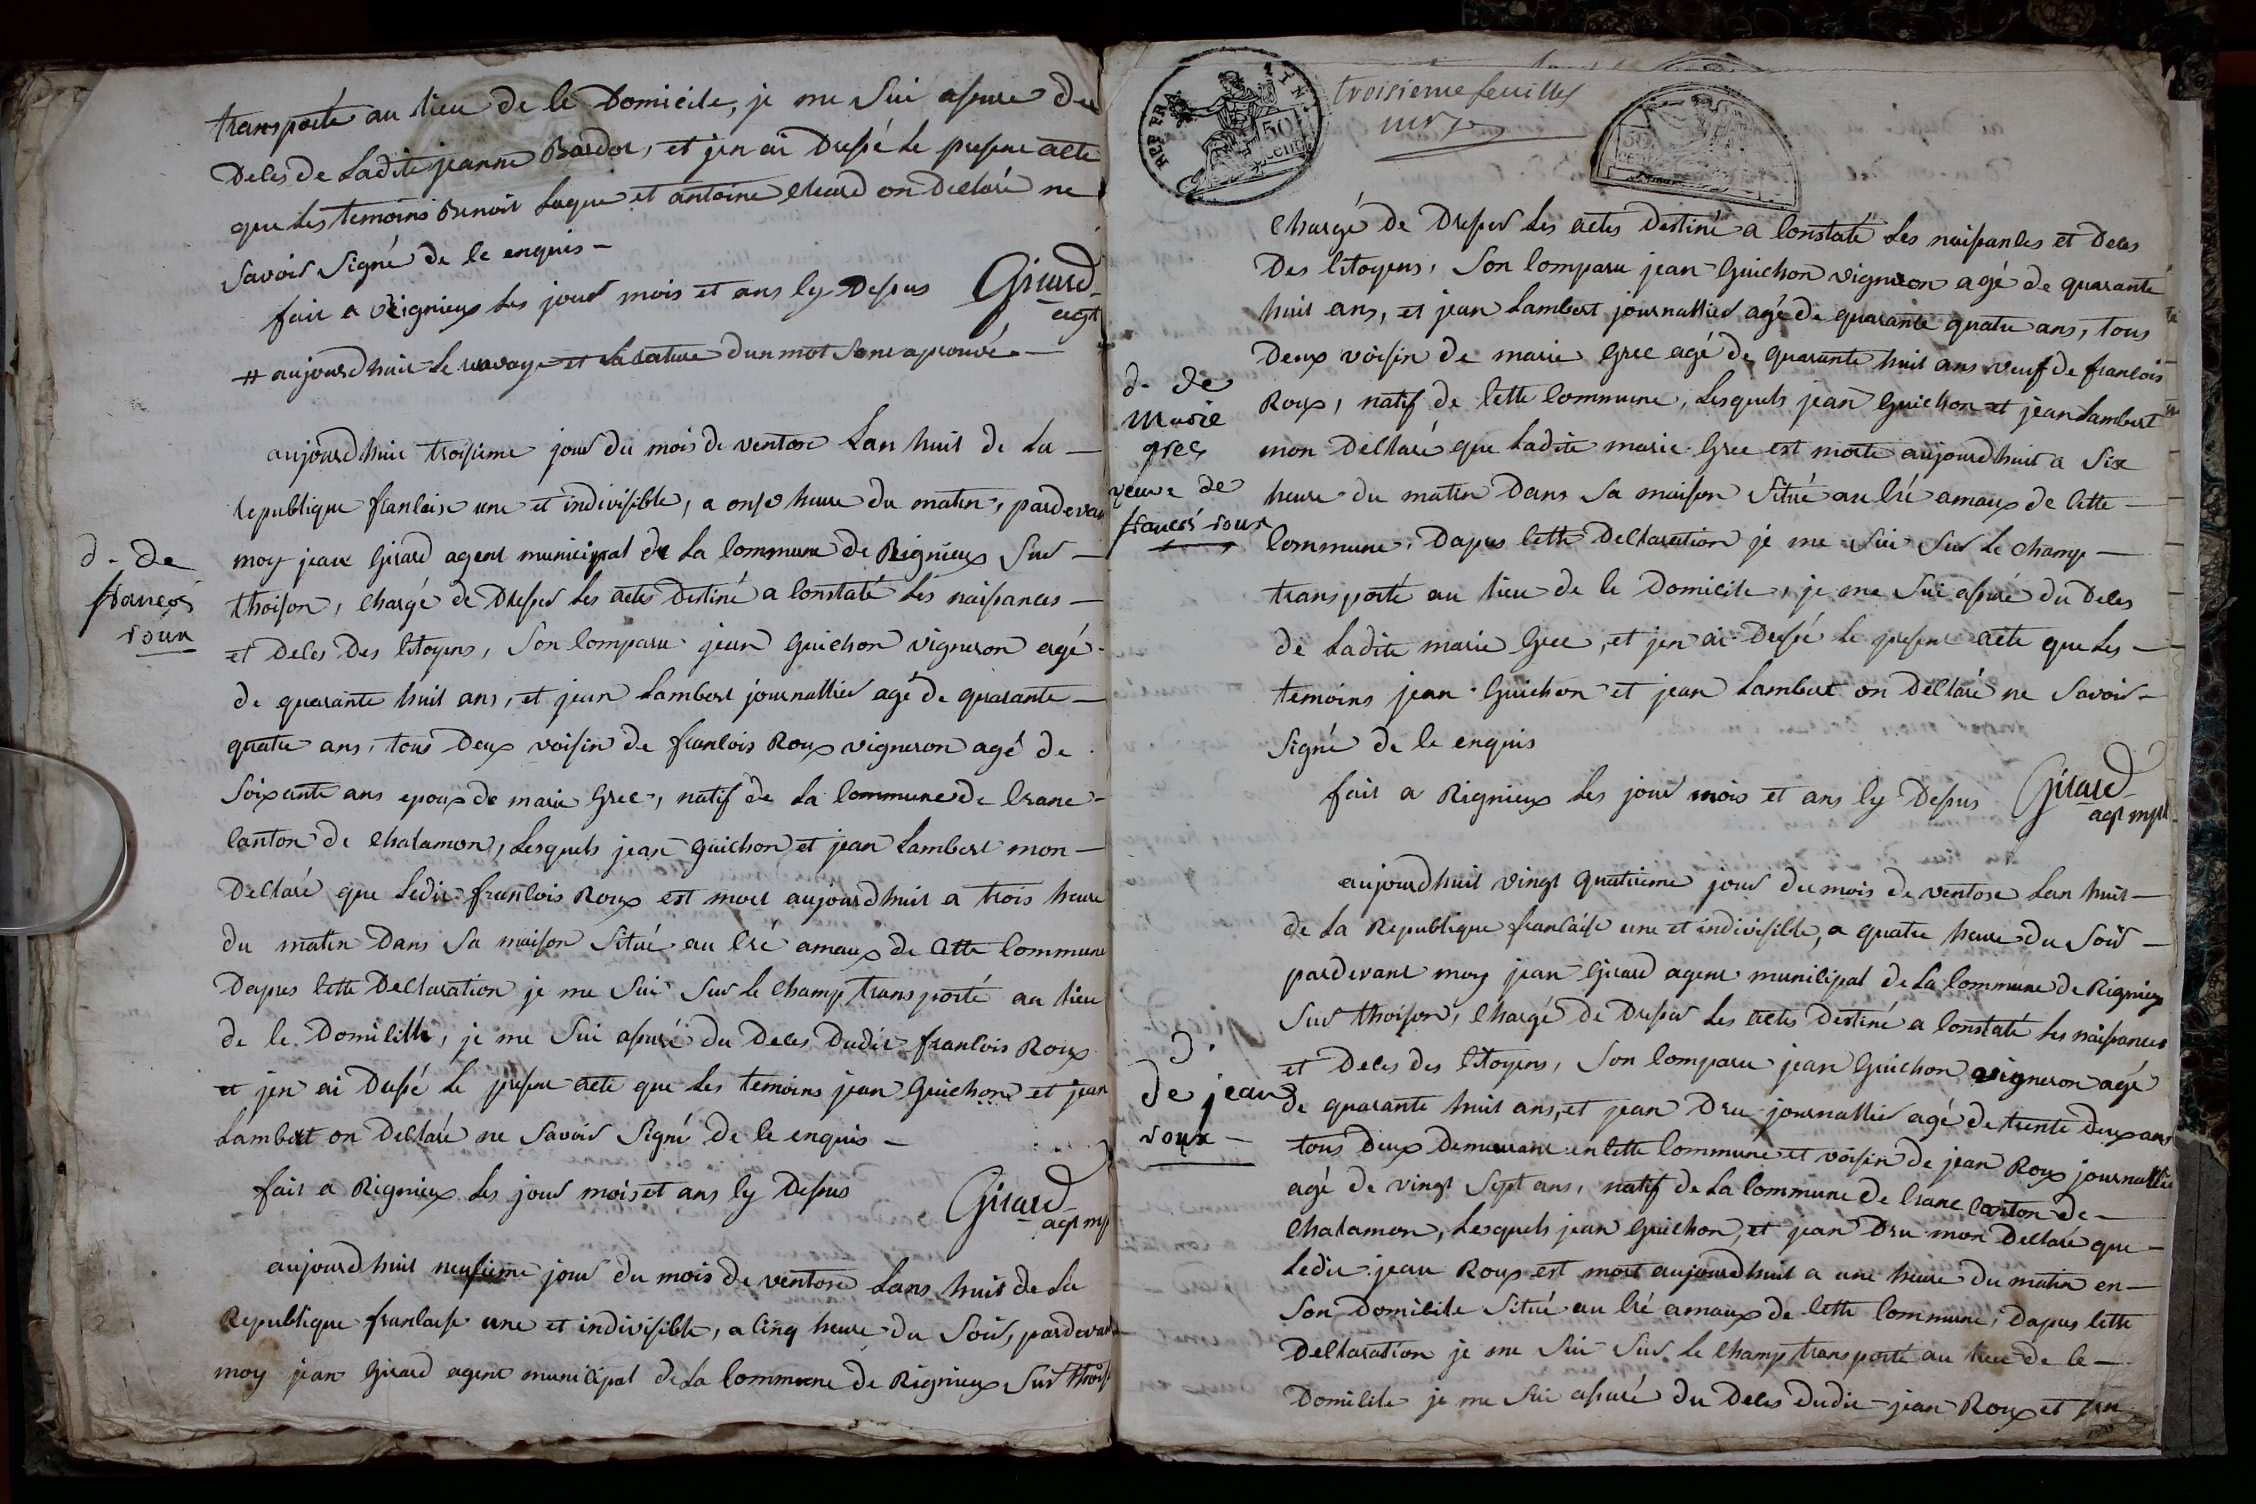 transporté au lieu de le Domicile, je me Sui assure du
Deces de Ladite jeanne Bardol, et jen ai Dressé Le present acte
que Les temoins Benoit Luque et antoine Cheard on Declaré ne
Savoir Signé de le enquis –
fait a Rignieux Les jour mois et ans cy Desus Girard
agt
# aujourdhuit Le renvoye et la rature dun mot Sont aprouvé –
aujourdhuit troisieme jour du mois de ventose Lan huit de La –
republique francaise une et indivisible, a onse heure du matin, pardevant
d. de
francois
roux
moy jean Girard agent municipal de La Commune de Rignieux Sur –
thoison, Chargé de Dresser Les actes Destiné a Constaté Les naissances –
et Deces Des Citoyens, Son Comparu jean Guichon vigneron agé
de quarante huit ans, et jean Lambert journallier agé de quarante –
quatre ans, tous Deux voisin de francois Roux vigneron agé de
Soixante ans epoux de marie Gree, natif de La Commune de Crane –
Canton de Chalamon, Lesquels jean Guichon et jean Lambert mon –
Declaré que Ledit francois Roux est mort aujourdhuit a trois heure
du matin Dans Sa maison Situé au Cré amaux de Cette Commune
Dapres Cette Declaration je me Sui Sur Le Champ transporté au lieu
de le Domicille, je me Sui assuré du Deces Dudit francois Roux
et jen ai Dressé Le present acte que Les temoins jean Guichon et jean
Lambert on Declaré ne Savoir Signé de le enquis –
fait a Rignieux Les jour mois et ans cy Desus Girard
agt mpl
aujourdhuit neufieme jour du mois de ventose Lans huit de La
Republique francaise une et indivisible, a Cinq heure du Soir, pardevant
moy jean Girard agent municipal de La Commune de Rignieux Sur thoison
REP FRA
50
CENT
troisieme feuilles
50
CENT
Chargé de Dresser Les actes Destiné a Constaté Les naissances et Deces
Des Citoyens, Son Comparu jean Guichon vigneron agé de quarante
huit ans, et jean Lambert journallier agé de quarante quatre ans, tous
Deux voisin de marie Gree agé de quarante huit ans veuf de francois
d. de
Marie
gree
veuve de
francois roux
Roux, natif de Cette Commune, Lesquels jean Guichon et jean Lambert
mon Declaré que Ladite marie Gree est morte aujourdhuit a Six
heure du matin Dans Sa maison Situé au Cré amaux de Cette –
Commune, Dapres Cette Declaration je me Sui Sur Le Champ –
transporté au lieu de le Domicile, je me Sui assuré du Deces
de Ladite marie Gree, et jen ai Dressé Le present acte que Les –
temoins jean Guichon et jean Lambert on Declaré ne Savoir –
Signé de le enquis
fait a Rignieux Les jour mois et ans cy Desus Girard
agt mpl
aujourdhuit vingt quatrieme jour du mois de ventose Lan huit –
de La Republique francaise une et indivisible, a quatre heure du Soir –
pardevant moy jean Girard agent municipal de La Commune de Rignieux
Sur thoison, Chargé de Dresser Les actes Destiné a Constaté Les naissances
d.
de jean
roux –
et Deces des Citoyens, Son Comparu jean Guichon vigneron agé
de quarante huit ans, et jean Dru journallier agé de trente deux ans
tous Deux Demeurant en Cette Commune et voisin de jean Roux journallier
agé de vingt Sept ans, natif de La Commune de Crane Canton de –
Chalamon, Lesquels jean Guichon, et jean Dru mon Declaré que –
Ledit jean Roux est mort aujourdhuit a une heure du matin en –
Son Domicile Situé au Cré amaux de Cette Commune, Dapres Cette
Declaration je me Sui Sur Le Champ transporté au lieu de le –
Domicile je me Sui assuré du Deces dudit jean Roux et jen